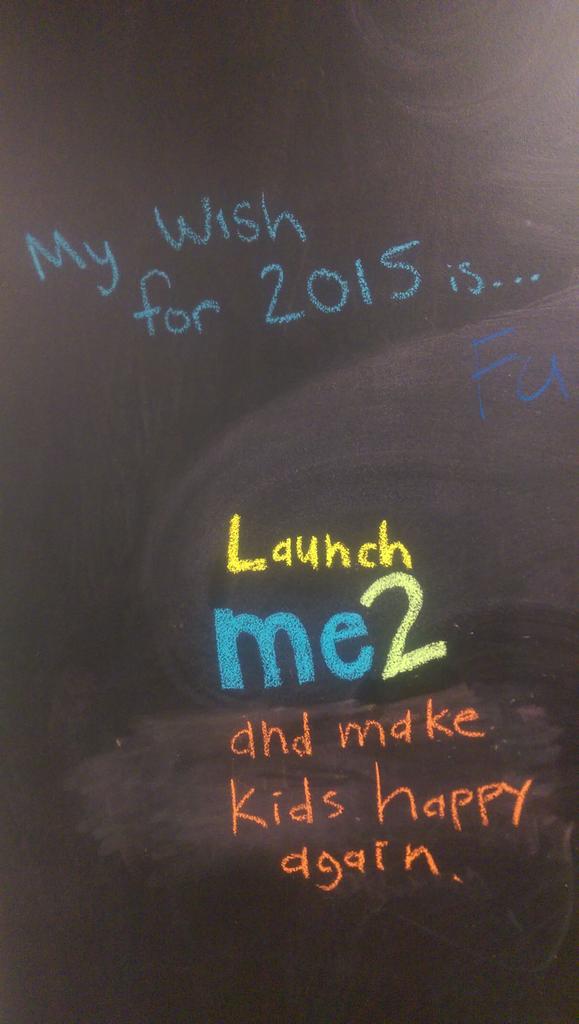 My Wish
for 2015 is...
Fu
Launch
me2
and make
kids happy
again.